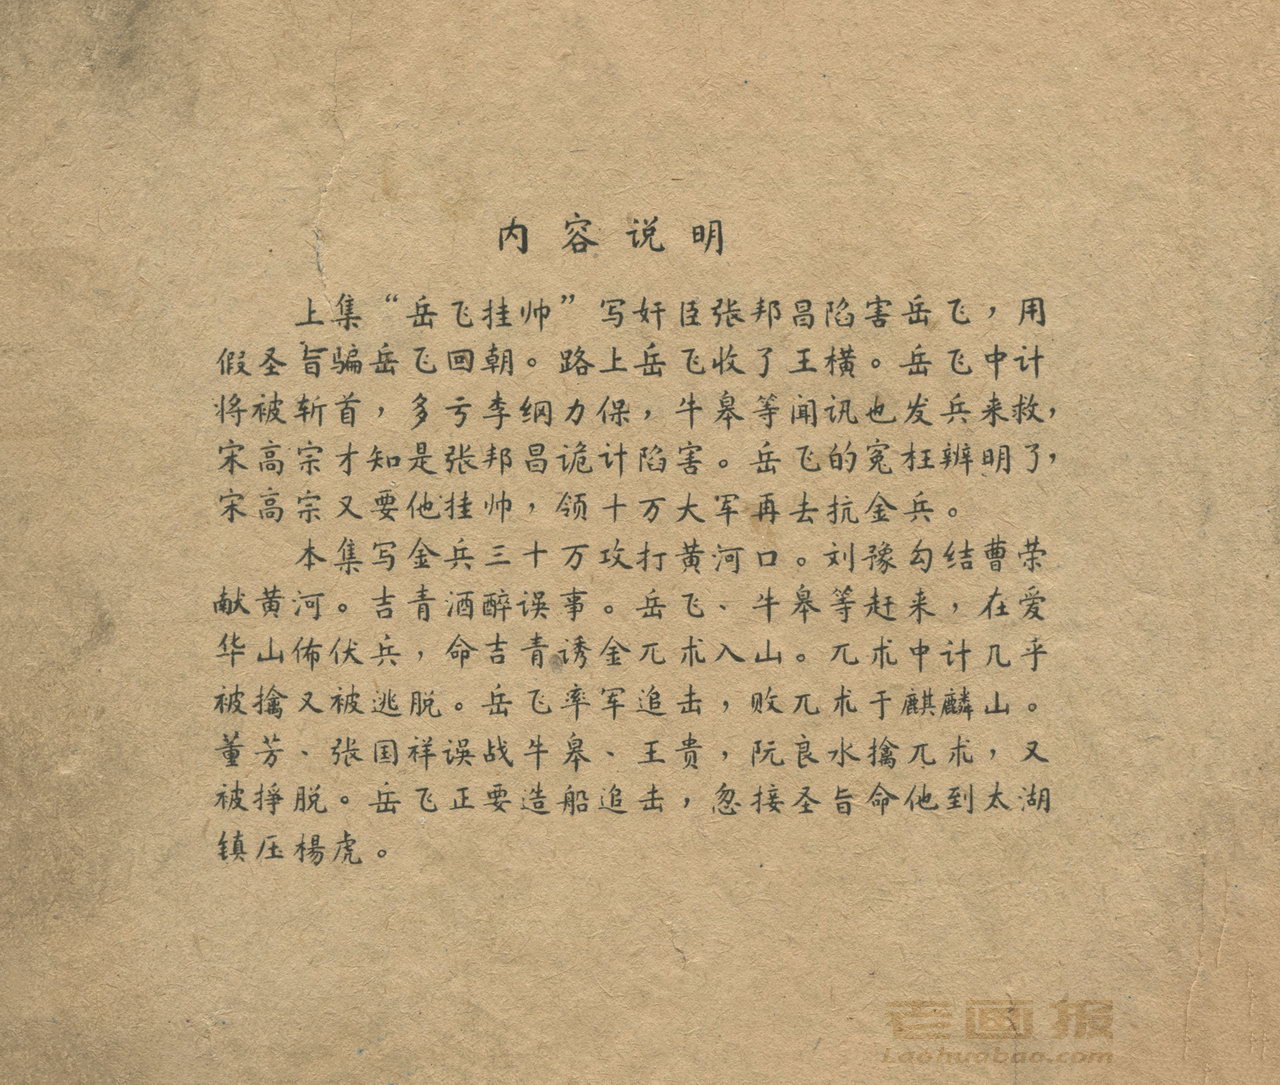 内容说明
上集“岳飞挂帅”写奸臣张邦昌陷害岳飞，用
假圣旨骗岳飞回朝。路上岳飞收了王横。岳飞中计
将被斩首，多亏李纲力保，牛皋等闻讯也发兵来救，
宋高宗才知是张邦昌诡计陷害。岳飞的冤枉辨明了，
宋高宗又要他挂帅，领十万大军再去抗金兵。
本集写金兵三十万攻打黄河口。刘豫勾结曹荣
献黄河。吉青酒醉误事。岳飞、牛皋等赶来，在爱
华山佈伏兵，命吉青诱金兀术入山。兀术中计几乎
被擒又被逃脱。岳飞率军追击，败兀术于麒麟山。
董芳、张国祥误战牛皋、王贵，阮良水擒兀术，又
被挣脱。岳飞正要造船追击，忽接圣旨命他到太湖
镇压楊虎。
老画报
Laohuabao.com